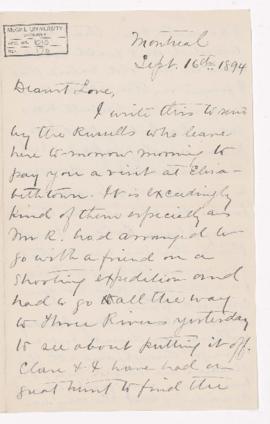 McGILL UNIVERSITY
ACC. NO.
REF.
Montreal
Sept. 16th 1894
Dearest Love,
I write this to send
by the Russells who leave
here to-morrow morning to
pay you a visit at Eliza-
bethtown. It is exceedingly
kind of them especially as
Mr R. had arranged to
go with a friend on a
shooting expedition and
had to go all the way
to Three Rivers yesterday
to see about putting it off.
Clare & I have had a
great hunt to find the